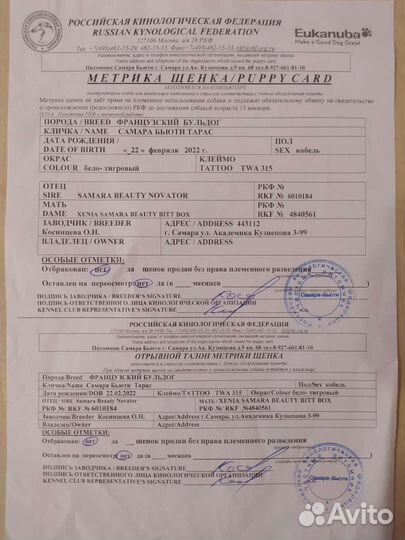 РОССИЙСКАЯ КИНОЛОГИЧЕСКАЯ ФЕДЕРАЦИЯ
RUSSIAN KYNOLOGICAL FEDERATION
127106 Москва, а/я 28 РКФ
Тел. +7(495)482-15-29, 482-15-33, Факс +7(495)482-15-35, rkf@rkf.org.ru
Eukanuba
Make a Good Dog Great
Питомник Самара Бьюти г. Самара ул.Ак. Кузнецова д.9 кв. 68 тел.8-927-601-81-10
МЕТРИКА ЩЕНКА/PUPPY CARD
ЗАПОЛНЯЕТСЯ НА КОМПЬЮТЕРЕ
Метрика щенка не даёт права на племенное использование собаки и подлежит обязательному обмену на свидетельство
о происхождении (родословную) РКФ до достижения собакой возраста 15 месяцев.
ПОРОДА / BREED ФРАНЦУЗСКИЙ БУЛЬДОГ
КЛИЧКА / NAME САМАРА БЬЮТИ ТАРАС
ДАТА РОЖДЕНИЯ / ПОЛ
DATE OF BIRTH «_22 » февраля 2022 г. SEX кобель
ОКРАС КЛЕЙМО
COLOUR бело- тигровый TATTOO TWA 315
ОТЕЦ РКФ №
SIRE SAMARA BEAUTY NOVATOR RKF № 6010184
МАТЬ РКФ №
DAME XENIA SAMARA BEAUTY BITT BOX RKF № 4840561
ЗАВОДЧИК / BREEDER АДРЕС / ADDRESS 443112
Косинцева О.Н. г. Самара ул. Академика Кузнецова 3-99
ВЛАДЕЛЕЦ / OWNER АДРЕС / ADDRESS
ОСОБЫЕ ОТМЕТКИ:
Отбракован: нет да щенок продан без права племенного разведения
Оставлен на пересмотр: нет да (в ___ месяцев)
ПОДПИСЬ ЗАВОДЧИКА / BREEDER'S SIGNATURE
ПОДПИСЬ ОТВЕТСТВЕННОГО ЛИЦА КИНОЛОГИЧЕСКОЙ ОРГАНИЗАЦИИ
KENNEL CLUB REPRESENTATIVE'S SIGNATURE
Самара-Бьюти
РОССИЙСКАЯ КИНОЛОГИЧЕСКАЯ ФЕДЕРАЦИЯ
Питомник Самара Бьюти г. Самара ул.Ак. Кузнецова д.9 кв. 68 тел.8-927-601-81-10
ОТРЫВНОЙ ТАЛОН МЕТРИКИ ЩЕНКА
Порода/Breed ФРАНЦУЗСКИЙ БУЛЬДОГ
Кличка/Name Самара Бьюти Тарас Пол/Sex кобель
Дата Рождения/DOB 22.02.2022 Клеймо/TATTOO TWA 315 Окрас/Colour бело- тигровый
ОТЕЦ / SIRE Samara Beauty Novator МАТЬ / XENIA SAMARA BEAUTY BITT BOX
РКФ № / RKF № 6010184 РКФ № / RKF №4840561
Заводчик/Breeder Косинцевой О.Н. Адрес/Address г.Самара ул.Академика Кузнецова 3-99
Владелец/Owner Адрес/Address
ОСОБЫЕ ОТМЕТКИ:
Отбракован: нет да щенок продан без права племенного разведения
Оставлен на пересмотр: нет да (в ___ месяцев)
ПОДПИСЬ ЗАВОДЧИКА / BREEDER'S SIGNATURE
ПОДПИСЬ ОТВЕТСТВЕННОГО ЛИЦА КИНОЛОГИЧЕСКОЙ ОРГАНИЗАЦИИ
KENNEL CLUB REPRESENTATIVE'S SIGNATURE
Самара-Бьюти
Avito